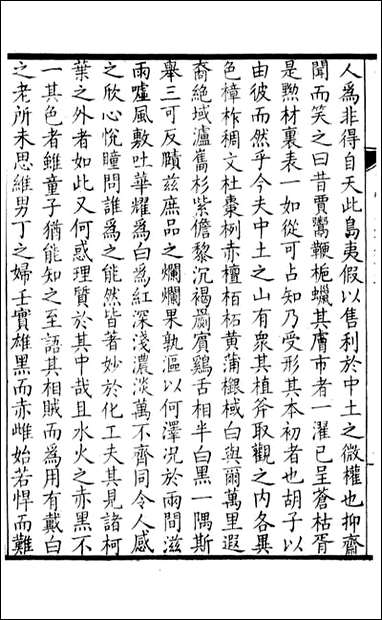 人爲非得自天此島夷假以售利於中土之微權也抑齋
聞而笑之曰昔賈鬻鞭梔蠟其膚市者一濯已呈蒼枯胥
是黦材裏表一如從可占知乃受形其本初者也胡子以
由彼而然乎今夫中土之山有衆其植斧取觀之内各異
色樟柞稠文杜棗栵赤檀栢柘黄蒲櫬棫白與爾萬里遐
裔絶域瀘雟杉紫儋黎沉褐罽賓鷄舌相半白黑一隅斯
舉三可反賾兹庶品之爛爛果孰漚以何澤况於兩間滋
雨噓風敷吐華耀爲白爲紅深淺濃淡萬不齊同令人感
之欣心悅瞳問誰爲之能然皆者妙於化工夫其見諸柯
葉之外者如此又何惑理質於其中哉且水火之赤黑不
一其色者雖童子猶能知之至語其相賊而爲用有戴白
之老所未思維男丁之婦壬實雄黑而赤雌始若悍而難